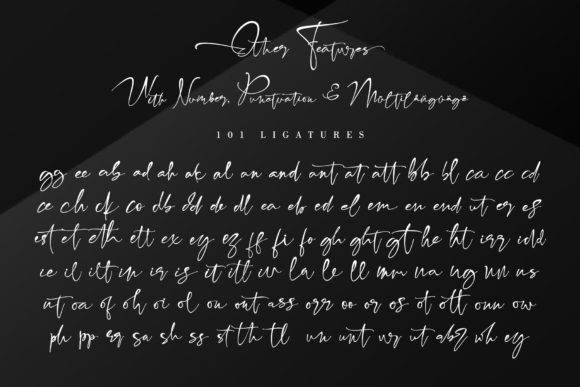 Other Features
With Number, Punctuation & Multilanguage
101 LIGATURES
gg ee ab ad ah ak al an and ant at att bb bl ca cc cd
ce ch ck co db dd de dl ea eb ed el em en end ut er es
est et eth ett ex ey ez ff fi fo gh ght gt he ht irr
ie il in ir is it itt la le ll mm na ng nn ns
nt oa of oh oi ol on ont ass orr oo or os ot ott oun ow
ph pp rg sa sh ss st th tl un unt ur ut wh ey